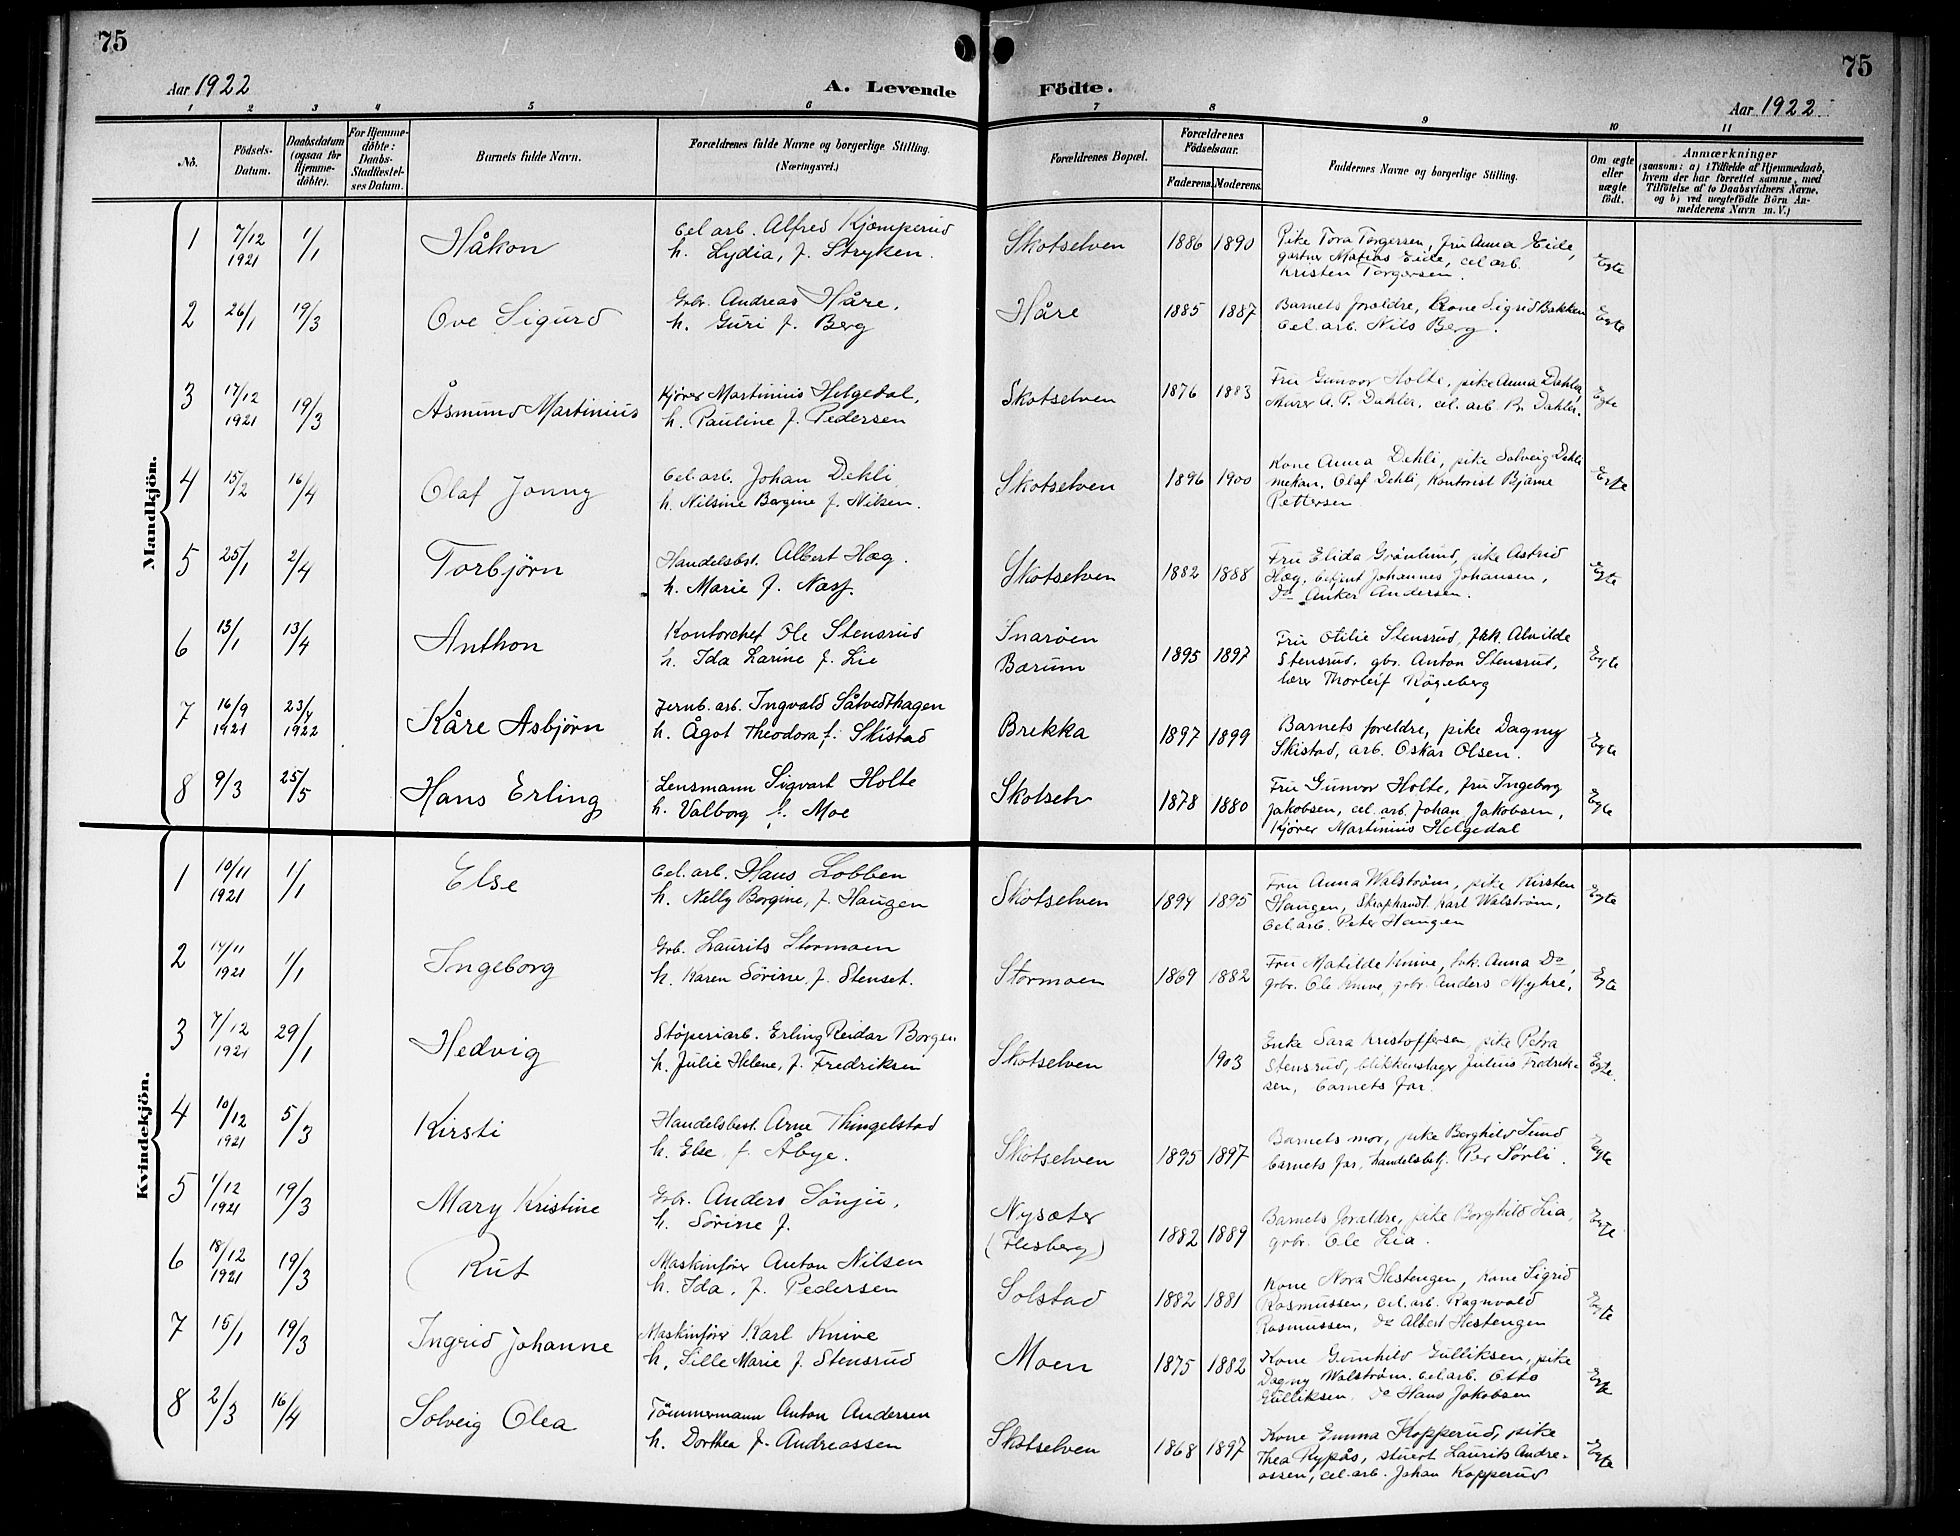 75
Aar 1922
A. Levende
Födte.
Aar 1922
75
1 2 3 4 5 6 7 8 9 10 11
No.
Födsels-
Datum.
Daabsdatum
(ogsaa for
Hjemme-
döbte).
For Hjemme-
döbte:
Daabs-
Stadfæstel-
ses Datum.
Barnets fulde Navn.
Forældrenes fulde Navne og borgerlige Stilling.
(Næringsvei.)
Forældrenes Bopæl.
Forældrenes
Födselsaar.
Faderens. Moderens.
Faddernes Navne og borgerlige Stilling.
Om ægte
eller
uægte
födt.
Anmærkninger
(saasom: a) i Tilfælde af Hjemmedaab,
hvem der har forrettet samme, med
Tilföielse af to Daabsvidners Navne,
og b) ved uægtefödte Börn An-
melderens Navn m. V.)
Mandkjön.
1 7/12 1921 1/1 Håkon
Cel arb. Alfred Kjæmperud
h. Lydia, f. Stryken.
Skotselven 1886 1890
Pike Tora Torgersen, fru Anna Eide,
gartner Matias Eide, cel. arb.
Kristen Torgersen.
Egte
2 26/1 19/3 Ove Sigurd
Grbr. Andreas Håre,
h. Guri f. Berg
Håre 1885 1887
Barnets forældre, Kone Sigrid Bakken
Cel. arb. Nils Berg.
Egte
3 17/12 1921 19/3 Åsmund Martinius
Kjörer Martinius Helgedal,
h. Pauline f. Pedersen
Skotselven 1876 1883
Fru Gunvor Holte, pike Anna Dahler,
Murer A. P. Dahler, cel. arb. Pr. Dahler.
Egte
4 15/2 16/4 Olaf Jonny
Cel. arb. Johan Dehli
h. Nilsine Bergine f. Nilsen.
Skotselven 1896 1900
Kone Anna Dehli, pike Solveig Dehli
mekan. Olaf Dehli, Kontorist Bjarne
Pettersen
Egte
5 25/1 2/4 Torbjörn
Handelsbst. Albert Hæg.
h. Marie f.
Skotselven 1882 1888
Fru Elida Grönlund, pike Astrid
Hæg, Johannes Johansen,
do Anker Andersen.
Egte
6 13/1 13/4 Anthon
Kontorchef Ole Stensrud
h. Ida Larine f. Lie
Snaröen
Bærum
1895 1897
Fru Otilie Stensrud, frk. Alvilde
Stensrud, gbr. Anton Stensrud,
lærer Thorleif Rögeberg
Egte
7 16/9 1921 23/4 1922 Kåre Asbjörn
Jernb. arb. Ingvald Såtvedthagen
h. Ågot Theodora f. Skistad
Brekka 1897 1899
Barnets foreldre, pike Dagny
Skistad, arb. Oskar Olsen.
Egte
8 9/3 25/5 Hans Erling
Lensmann Sigvart Holte
h. Valborg f. Moe
Skotselv 1878 1880
Fru Gunvor Holte, fru Ingeborg
Jakobsen, cel. arb. Johan Jakobsen,
Kjörer Martinius Helgedal
Egte
Kvindekjön.
1 10/11 1921 1/1 Else
Cel. arb. Hans Lobben
h. Nelly Borgine, f. Haugen
Skotselven 1894 1895
Fru Anna Walström, pike Kirsten
Haugen, Skraphandl. Karl Walström,
Cel. arb. Peter Haugen
Egte
2 14/11 1921 1/1 Ingeborg
Grb. Laurits Stormoen
h. Karen Sörine, f. Stenset.
Stormoen 1869 1882
Fru Matilde Knive, frk. Anna Do,
grbr. Ole Knive, grbr. Anders Myhre,
Egte
3 7/12 1921 29/1 Hedvig
Stöperiarb. Erling Reidar Borgen
h. Julie Helene, f. Fredriksen
Skotselven 1903
Enke Sara Kristoffersen, pike Petra
Stensrud, blikkenslager Julius Fredrik-
sen, barnets far.
Egte.
4 10/12 1921 5/3 Kirsti
Handelsbest. Arne Thingelstad
h. Else f. Åbye.
Skotselven 1895 1897
Barnets mor, pike Borghild Lund
barnets far, handelsbetj. Per Sörli.
Egte
5 1/12 1921 19/3 Mary Kristine
Grbr. Anders
h. Sörine f.
Nysæter
(Flesberg)
1882 1889
Barnets forældre, pike Borghild Lia,
grbr. Ole Lia.
Egte
6 18/12 1921 19/3 Rut
Maskinförer Anton Nilsen
h. Ida, f. Pedersen
Solstad 1882 1881
Kone Nora Hestengen, Kone Sigrid
Rasmussen, cel. arb. Ragnvald
Rasmussen, do Albert Hestengen
Egte
7 15/1 19/3 Ingrid Johanne
Maskinförer Karl Knive
h. Sille Marie f. Stensrud
Moen 1875 1882
Kone Gunhild Gulliksen, pike
Dagny Walström, cel. arb. Otto
Gulliksen, do Hans Jakobsen
Egte
8 2/3 16/4 Solveig Olea
Tömmermann Anton Andersen
h. Dorthea f. Andreassen
Skotselven 1868 1897
Kone Emma Kopperud, pike
Thea Rypås, stuert Laurits Andre-
assen, cel. arb. Johan Kopperud
Egte